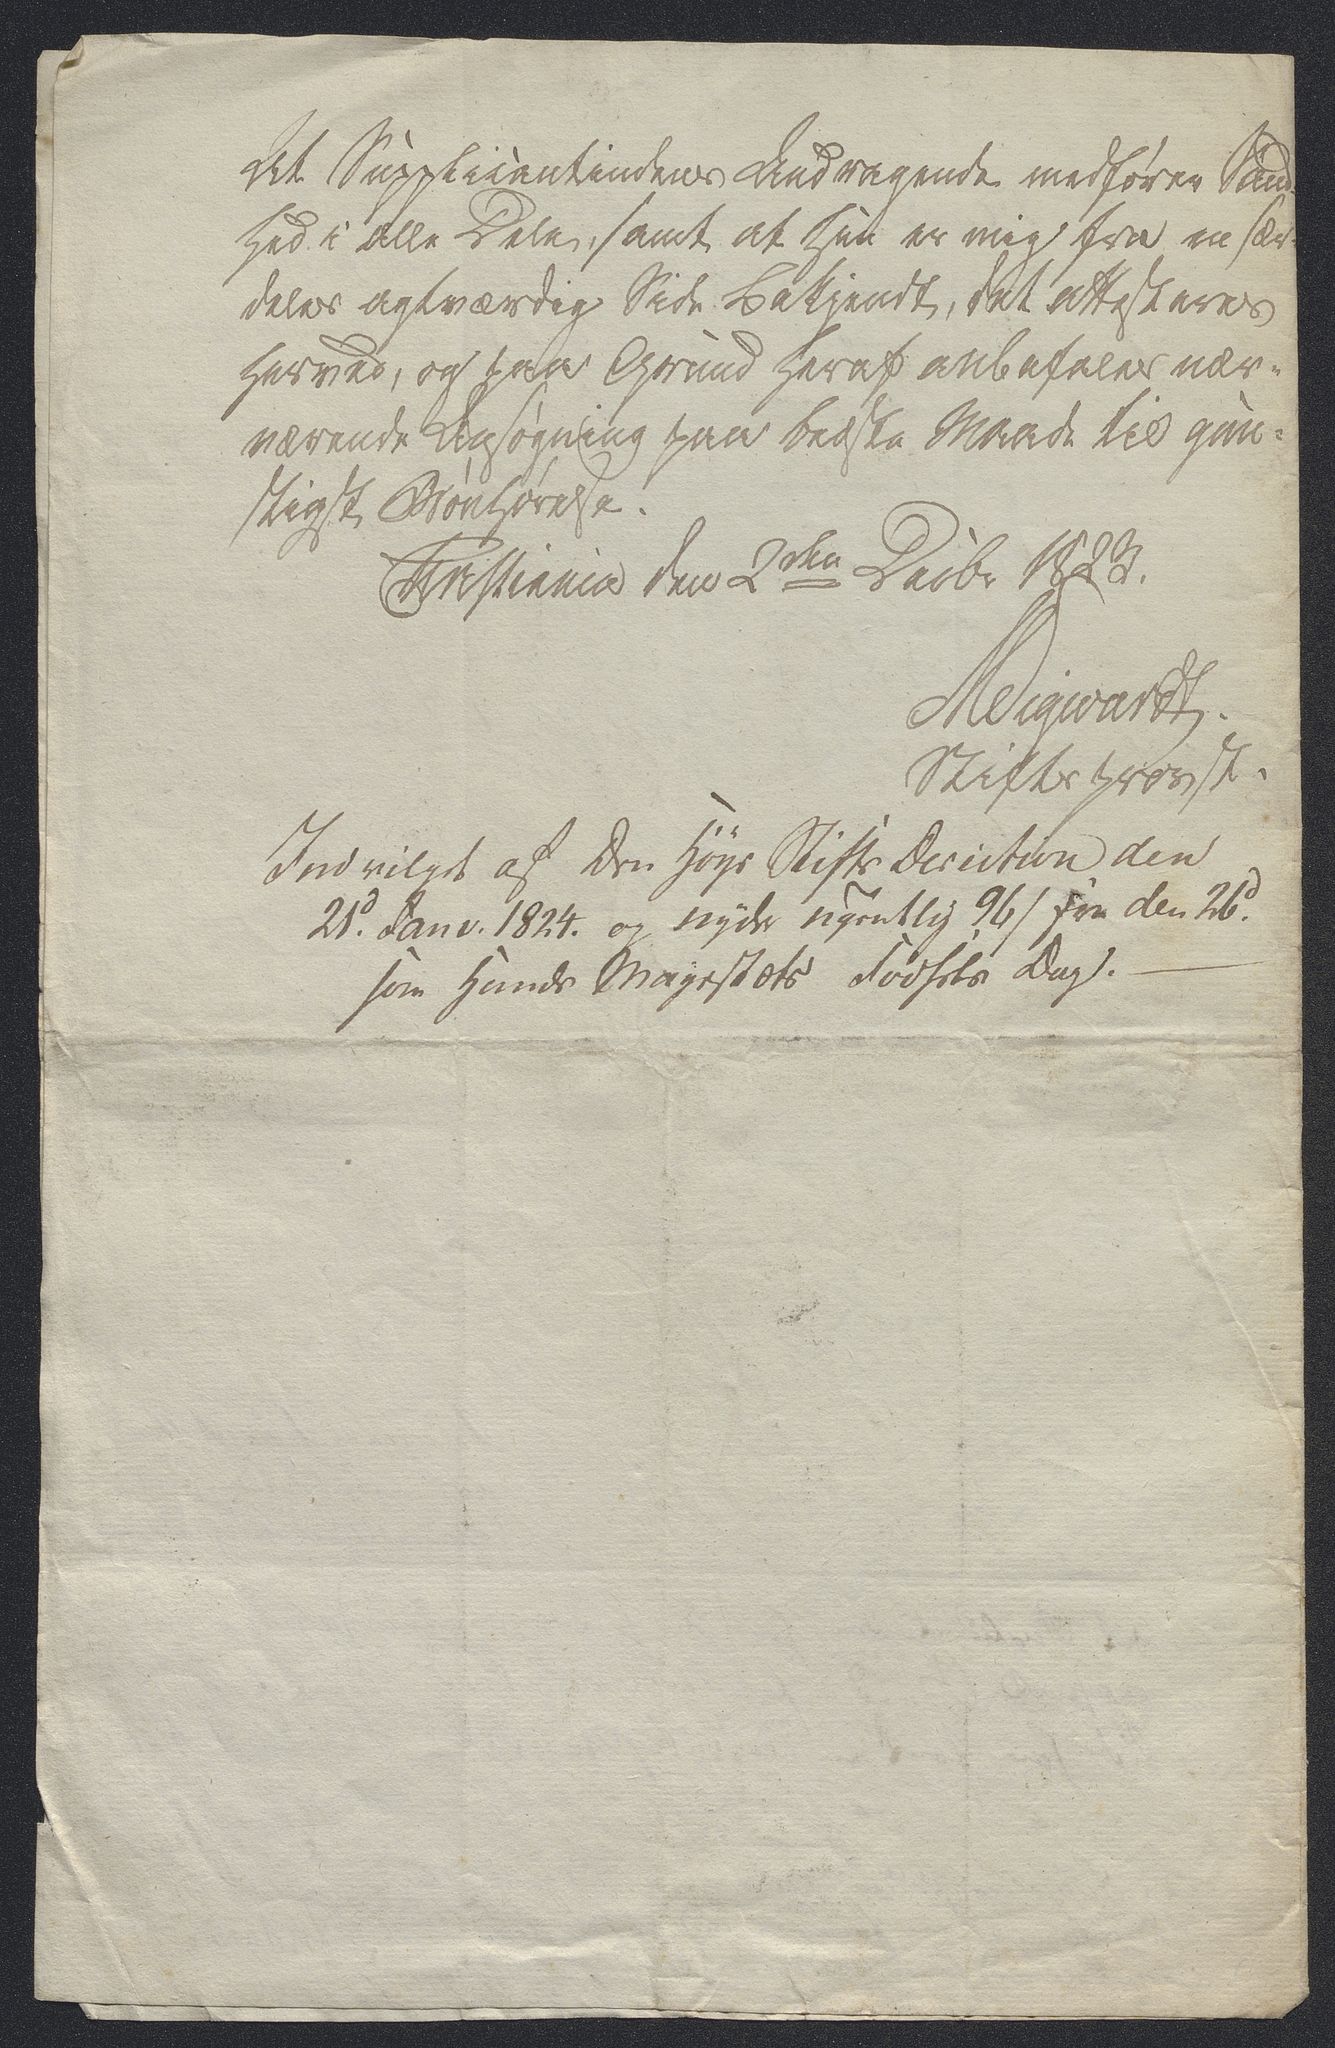 At Supplicantindens Andragende medfører Sand-
hed i alle Dele, samt at hun er mig fra en sær-
deles agtværdig Side bekjendt, det attesteres
herved, og paa Grund heraf anbefales nær-
værende Ansøgning paa bedste Maade til gun-
stigst Bønhørelse.
Christiania den 2den Decbr 1823.
Stiftsprovst.
Indvilget af Den Høye Stifts Direction den
21d Janv. 1824. og nyder ugentlig 96 s fra den 26d
som Hands Magestæts Fødsels Dag.